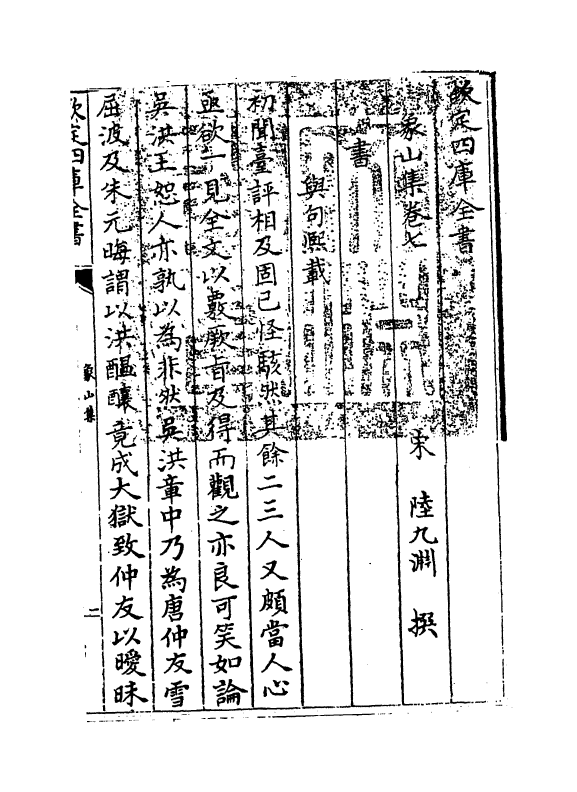 欽定四庫全書
象山集卷七
宋 陸九淵 撰
書
與勾熙載
初聞臺評相及固已怪駭然其餘二三人又頗當人心
亟欲一見全文以覈厥旨及得而觀之亦良可笑如論
吳洪王恕人亦孰以為非然吳洪章中乃為唐仲友雪
屈波及朱元晦謂以洪醞釀竟成大獄致仲友以曖昧
欽定四庫全書
象山集